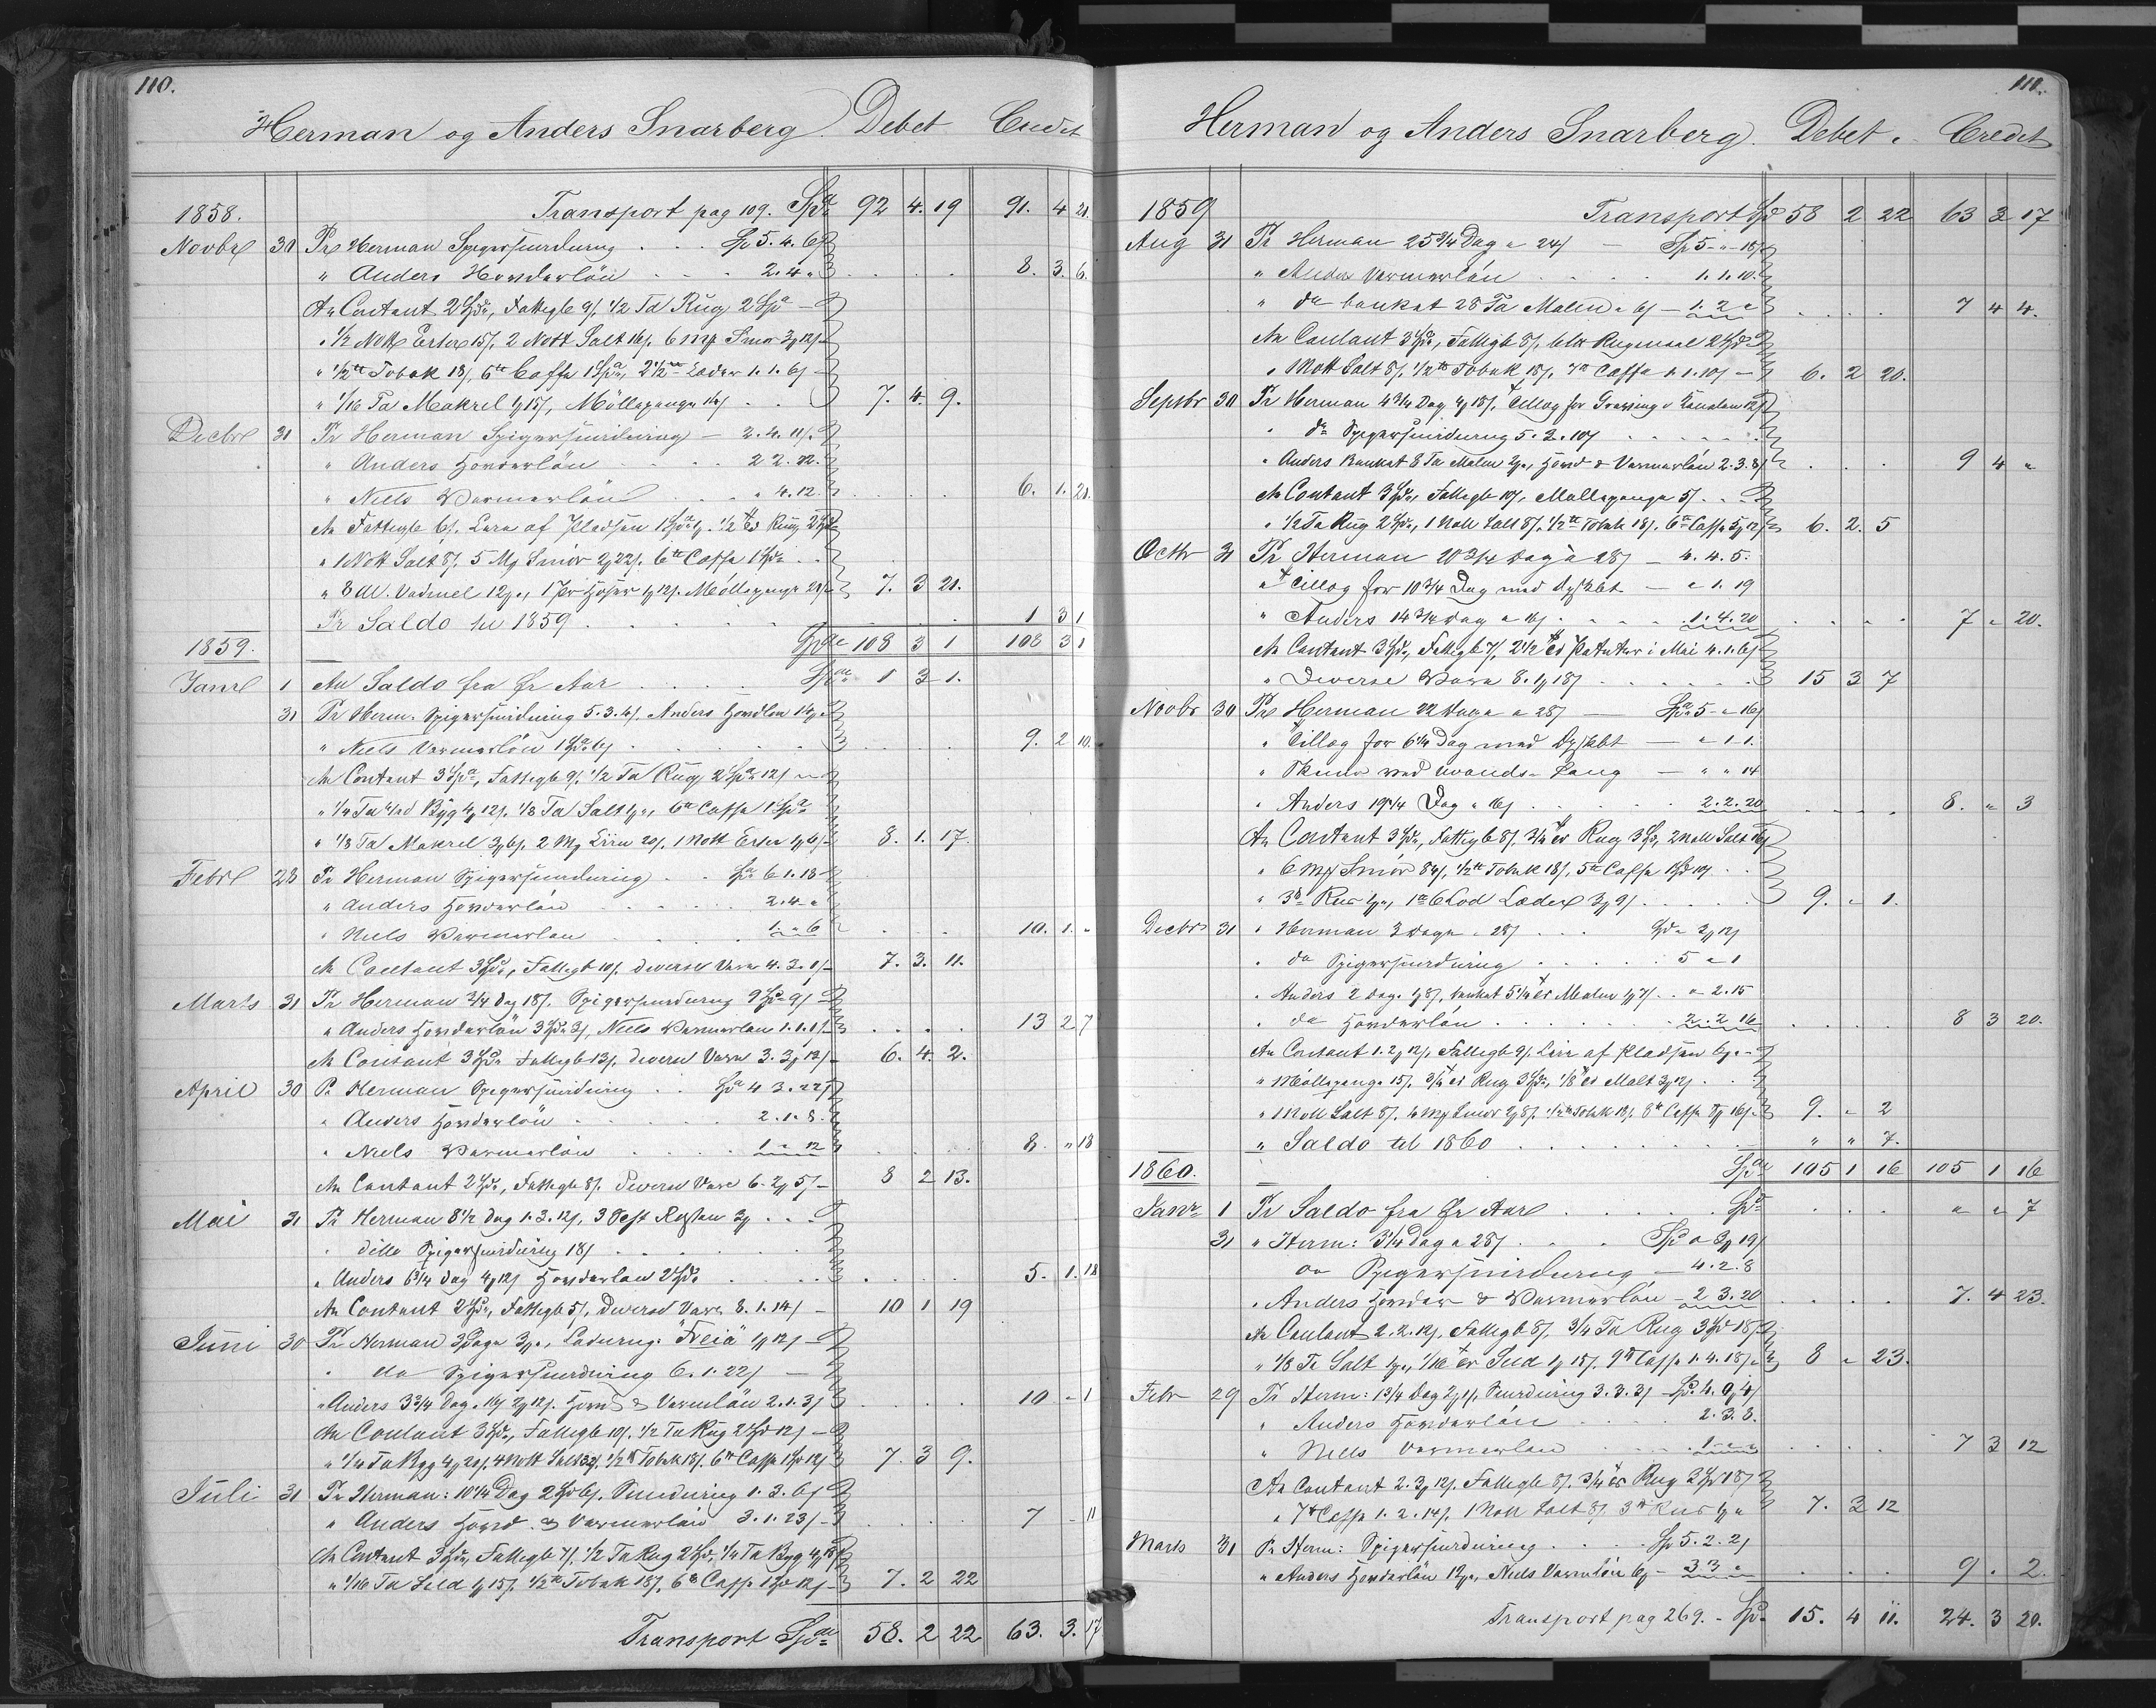 110.
Herman og Anders Snarberg. Debet Credit
1858. Transport pag 109. Spd 92 4. 19 91. 4 21.
Novbr 30 Pr Herman Spigersmidning Sp 5. 4. 6
" Anders Haandlön 2. 4 " 8. 3 6.
An Contant 2 Spd, Fattigb 9/, 1/2 Td Rug 2 Spd
" 1/2 Nott Erter 15/, 2 Nott Salt 16/, 6 Mp Smør 3 12/
" 1/2 tt Tobak 18/, 6 tt Caffe 1 Spd, 2 1/2 tt Læder 1. 1. 6/
" 1/16 Td Makrel 1 15/, Möllepenge 7. 4. 9.
Decbr 31 Pr Herman Spigersmidning 2. 4. 11/
" Anders Haanderlön 2 2. 22.
" Niels Varmerlön " 4. 12. 6. 1. 21.
An Fattigb 6/, Leie af Pladsen 1/2 Td Rug
" 1 Nott Salt 8/, 5 Mp Smör 2 22/, 6 tt Caffe 1 Spd
" 8 Al. Vadmel 12, 1 Par Hoser 1 12/, Möllepenge 7. 3 21.
Pr Saldo til 1859 1 3 1
1859. Spd 108 3 1 108 3 1
Janr 1 An Saldo fra fr Aar Spd 1 3 1.
31 Pr Herm. Spigersmidning 5. 3. 4/, Anders Haandlön
" Niels Varmerlön 1 Spd 6/ 9. 2 10.
An Contant 3 Spd, Fattigb 9/, 1/2 Td Rug 2 Spd 12/
" 1/4 Td Byg 4 12/, 1/8 Td Salt, 6 tt Caffe 1 Spd
" 1/8 Td Makrel 3 6/, 2 Mp Liin 20/, 1 Nott Erter 8. 1. 17.
Febr 28 Pr Herman Spigersmidning Spd 6. 1. 18
" Anders Haanderlön 2. 4 "
" Niels Varmerlön 1. " 6 10. 1. "
An Contant 3 Spd, Fattigb 10/, diverse Vare 4. 3. 1/ 7. 3. 11.
Marts 31 Pr Herman 3/4 Dag 18/, Spigersmidning 9 Spd 9/
" Anders Haanderlön 3 Spd 3/, Niels Varmerlön 1. 1. 1/ 13 2 7
An Contant 3 Spd Fattigb 13/, diverse Vare 3. 3 13/ 6. 4. 2.
April 30 Pr Herman Spigersmidning Spd 4 3. 22
" Anders Haanderlön 2. 1. 8.
" Niels Varmerlön 1 " 12 8. " 18
An Contant 2 Spd, Fattigb 8/, Diverse Vare 6. 2 5/ 8 2 13.
Mai 31 Pr Herman 8 1/2 Dag 1. 3. 12/
" ditto Spigersmidning 18/
" Anders 6 3/4 Dag 4 12/ Haanderlön 2 Spd 5. 1. 18
An Contant 2 Spd, Fattigb 5/, Diverse Vare 8. 1. 14/ 10 1 19
Juni 30 Pr Herman 3 Dage, Ladning "Freia" 1 12/
" do Spigersmidning 6. 1. 22/
" Anders 3 3/4 Dag 2 12/, Haand & Varmlön 2. 1. 3/ 10 " 1
An Contant 3 Spd, Fattigb 10/, 1/2 Td Rug 2 Spd 12/
" 1/4 Td Byg 4 20/, 4 Nott Salt 32/, 1/2 tt Tobak 18/, 6 tt Caffe 1 Spd 12/ 7. 3 9.
Juli 31 Pr Herman: 10 1/4 Dag 2 Spd 6/, Smidning 1. 3. 6/
" Anders Haand & Varmerlön 3. 1. 23/ 7 " 11
An Contant 3 Spd, Fattigb 7/, 1/2 Td Rug 2 Spd, 1/4 Td Byg
" 1/16 Td Sild 1 15/, 1/2 tt Tobak 18/, 6 tt Caffe 1 Spd 12/ 7. 2 22
Transport Spd 58. 2 22 63. 3. 17
111.
Herman og Anders Snarberg. Debet. Credit
1859 Transport Spd 58 2 22 63 3 17
Aug 31 Pr Herman 25 3/4 Dag a 24/ Sp 5 " 18/
" Anders Varmerlön 1. 1. 10.
" do banket 28 Td Malm a 6/ 1. 2 " 7 4 4.
An Contant 3 Spd, Fattigb 8/, Rugmeel 2 Spd
" 1 Nott Salt 8/, 1/2 tt Tobak 18/, Caffe 1. 1. 10/ 6. 2 20.
Septbr 30 Pr Herman 4 3/4 Dag 4 18/, Tillæg for
" do Spigersmidning 5. 2. 10/
" Anders Banket 8 Td Malm 2, Haand & Varmerlön 2. 3. 8/ 9 4 "
An Contant 3 Spd, Fattigb 10/, Möllepenge 5/
" 1/2 Td Rug 2 Spd, 1 Nott Salt 8/, 1/2 tt Tobak 18/, 6 tt Caffe 5 12/ 6. 2. 5
Octbr 31 Pr Herman 20 3/4 Dag a 28/ 4. 4. 5.
" Tillæg for 10 3/4 Dag med " 1. 19
" Anders 14 3/4 Dag a 16/ 1. 4. 20 7 " 20.
An Contant 3 Spd, Fattigb 7/, 2 1/2 Td Poteter i Mai 4. 1. 6/
" Diverse Vare 8. 1 18/ 15 3 7
Novbr 30 Pr Herman 22 Dage a 28/ Spd 5 " 16/
" Tillæg for 6 1/4 Dag med " 1 1.
" " " 14
" Anders 19 1/4 Dag a 16/ 2. 2. 20 8. " 3
An Contant 3 Spd, Fattigb 8/, 3/4 Td Rug 3 Spd, 2 Nott Salt 16/
" 6 Mp Smör 84/, 1/2 tt Tobak 18/, 5 tt Caffe
" 3 tt Riis, 1 tt 6 Lod Læder 3 9/ 9. " 1.
Decbr 31 " Herman 3 Dage a 28/ Spd " 3 12/
" do Spigersmidning 5 " 1
" Anders 2 Dage 1 8/, banket 5 1/4 Td Malm 1 7/ " 2. 15
" do Haanderlön 2. 2 16 8 3 20.
An Contant 1. 2 12/, Fattigb 9/, Leie af Pladsen
" Möllepenge 15/, 3/4 Td Rug 3 Spd, 1/8 Td Malt 3 12/
" 1 Nott Salt 8/, Smör 2 8/, 1/2 tt Tobak 18/, 8 tt Caffe 9. " 2
" Saldo til 1860 " " 7.
1860. Spd 105 1 16 105 1 16
Janr 1 Pr Saldo fra fr Aar Spd " " 7
31 " Herm: 3 1/4 Dag a 28/ Spd " 3 19/
do Spigersmidning 4. 2. 8
" Anders Haander & Varmerlön 2 3. 20 7. 4 23.
An Contant 2. 2. 12/, Fattigb 8/, 3/4 Td Rug 3 Spd 18/
" 1/8 Td Salt, 1/16 Td Sild 1 15/, 9 tt Caffe 1. 4. 18/ 8 " 23.
Febr 29 Pr Herm: 1 3/4 Dag 2 1/, Smidning 3. 3. 3/ Spd 4. 0 4/
" Anders Haanderlön 2. 3. 8.
" Niels Varmerlön 1 " " 7 3 12
An Contant 2. 3 12/, Fattigb 8/, 3/4 Td Rug 3 Spd 18/
" 7 tt Caffe 1. 2. 14/, 1 Nott Salt 8/, 3 tt Riis 7. 3 12
Marts 31 Pr Herm: Spigersmidning Sp 5. 2. 2/
" Anders Haanderlön, Niels Varmlön 3 3 " 9 . 2.
Transport pag 269. Spd 15. 4 11. 24. 3 20.